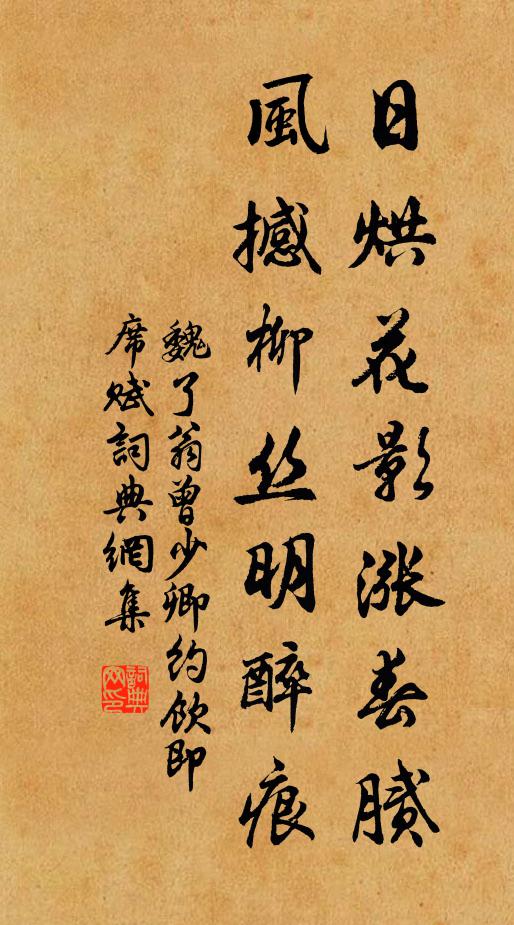 日烘花影涨春膩
風撼柳丝明醉痕
魏了翁曾少卿约饮即
席赋詞典網集
詞典
网印